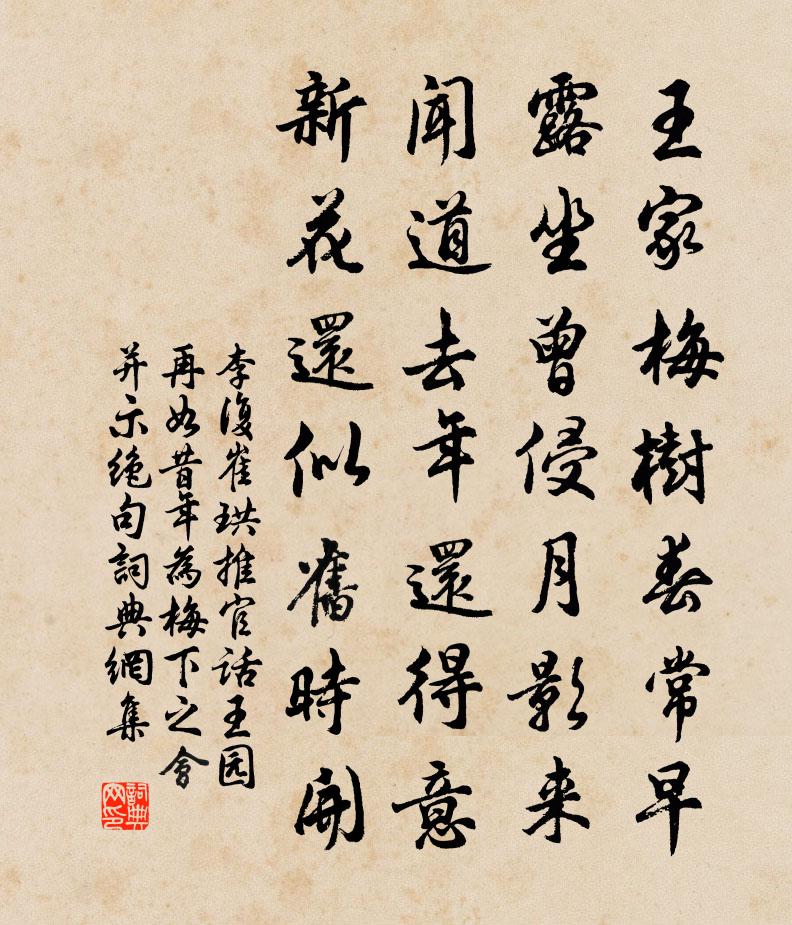 王家梅樹春常早
露坐曾侵月影来
聞道去年還得意
新花還似舊時開
李復崔珙推官話王园
再如昔年為梅下之會
并示绝句詞典網集
詞典网印